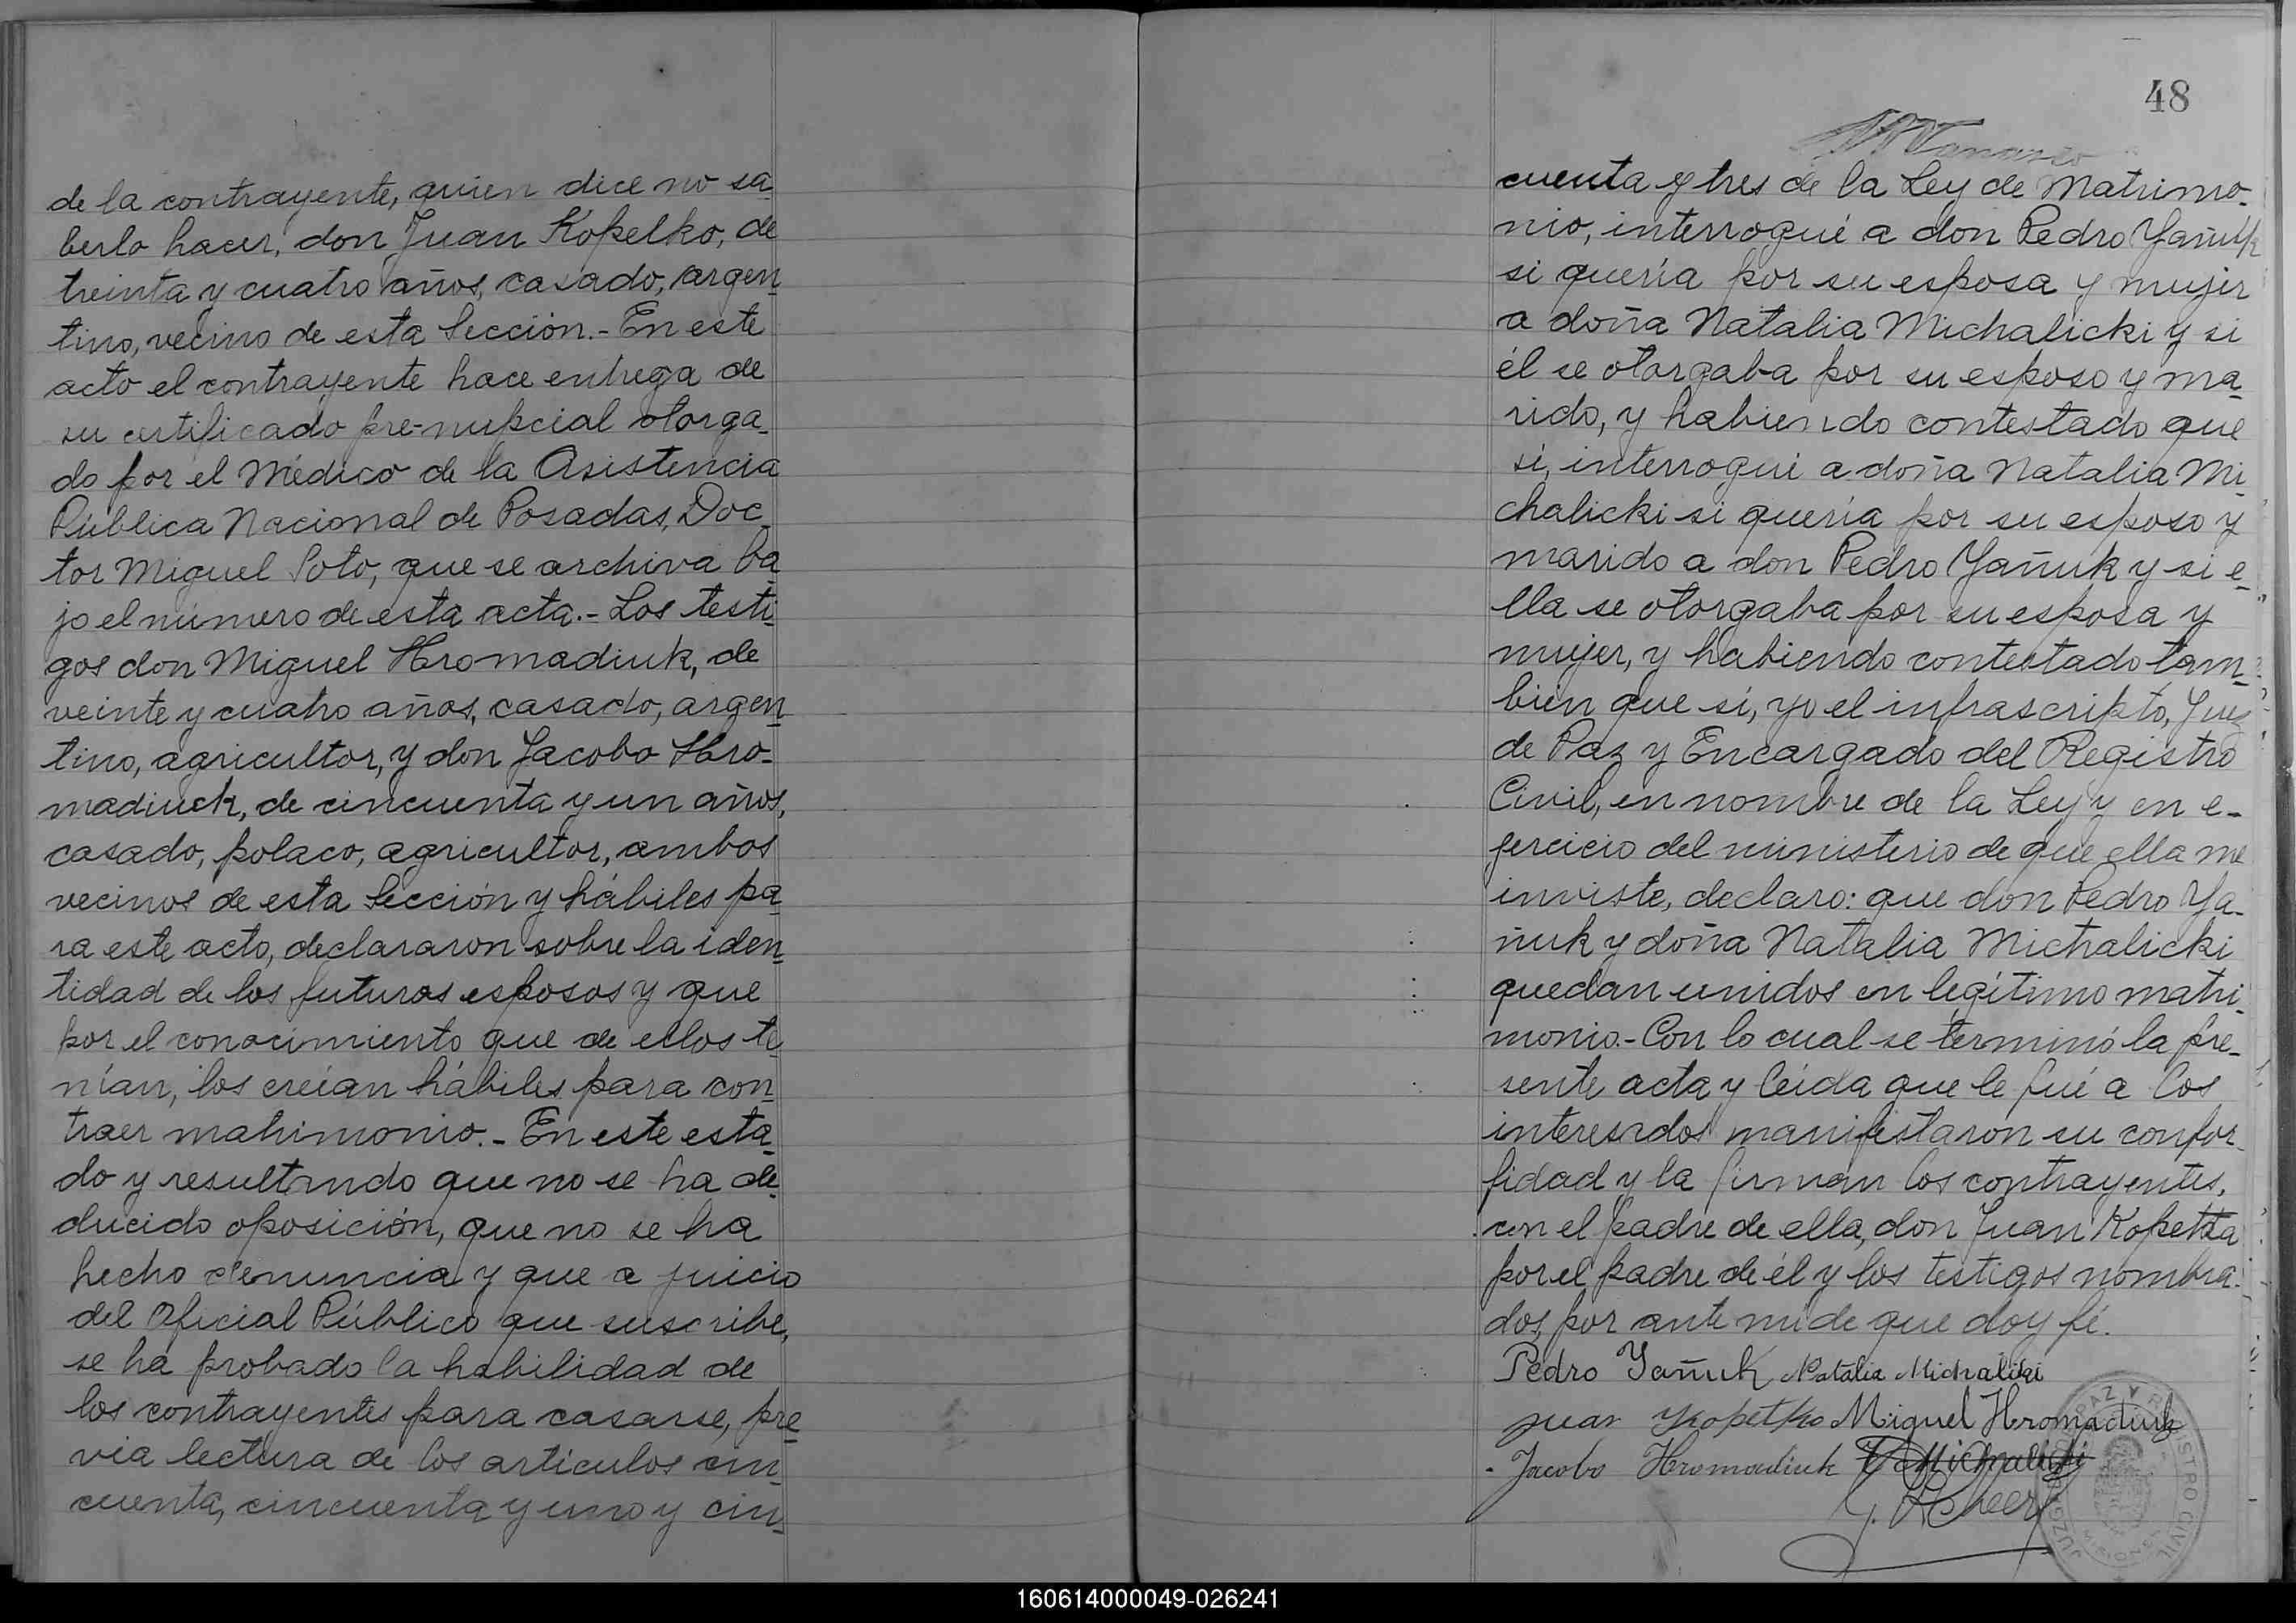 de la contrayente, quien dice no sa_
berlo hacer, don Juan Kopelko, de
treinta y cuatro años, casado, argen_
tino, vecino de esta Sección.- En este
acto el contrayente hace entrega de
su certificado pre-nupcial otorga_
do por el Médico de la Asistencia
Pública Nacional de Posadas, Doc_
tor Miguel Soto, que se archiva ba_
jo el número de esta acta.- Los testi_
gos don Miguel Hromadiuk, de
veinte y cuatro años, casado, argen_
tino, agricultor, y don Jacobo Hro_
madiuck, de cincuenta y un años,
casado, polaco, agricultor, ambos
vecinos de esta Sección y hábiles pa_
ra este acto, declararon sobre la iden_
tidad de los futuros esposos y que
por el conocimiento que de ellos te_
nían, los creían hábiles para con_
traer matrimonio.- En este esta_
do y resultando que no se ha de_
ducido oposición, que no se ha
hecho denuncia y que a juicio
del Oficial Público que suscribe,
se ha probado la habilidad de
los contrayentes para casarse, pre_
via lectura de los artículos cin_
cuenta, cincuenta y uno y cin_
48
cuenta y tres de la Ley de Matrimo_
nio, interrogué a don Pedro Yañuk
si quería por su esposa y mujer
a doña Natalia Michalicki y si
él se otorgaba por su esposo y ma_
rido, y habiendo contestado que
sí, interrogué a doña Natalia Mi_
chalicki si quería por su esposo y
marido a don Pedro Yañuk y si e_
lla se otorgaba por su esposa y
mujer, y habiendo contestado tam_
bién que sí, yo el infrascripto, Juez
de Paz y Encargado del Registro
Civil, en nombre de la Ley y en e-
jercicio del ministerio de que ella me
inviste, declaro: que don Pedro Ya_
ñuk y doña Natalia Michalicki
quedan unidos en legítimo matri_
monio.- Con lo cual se terminó la pre_
sente acta y leída que le fué a los
interesados manifestaron su confor_
midad y la firman los contrayentes,
con el padre de ella, don Juan
por el padre de él y los testigos nombra_
dos, por ante mí de que doy fé.
Pedro Yañuk Natalia Michalicki
Juan Kopetko Miguel Hromadiuk
Jacobo Hromadiuk
REGISTRO CIVIL
160614000049-026241